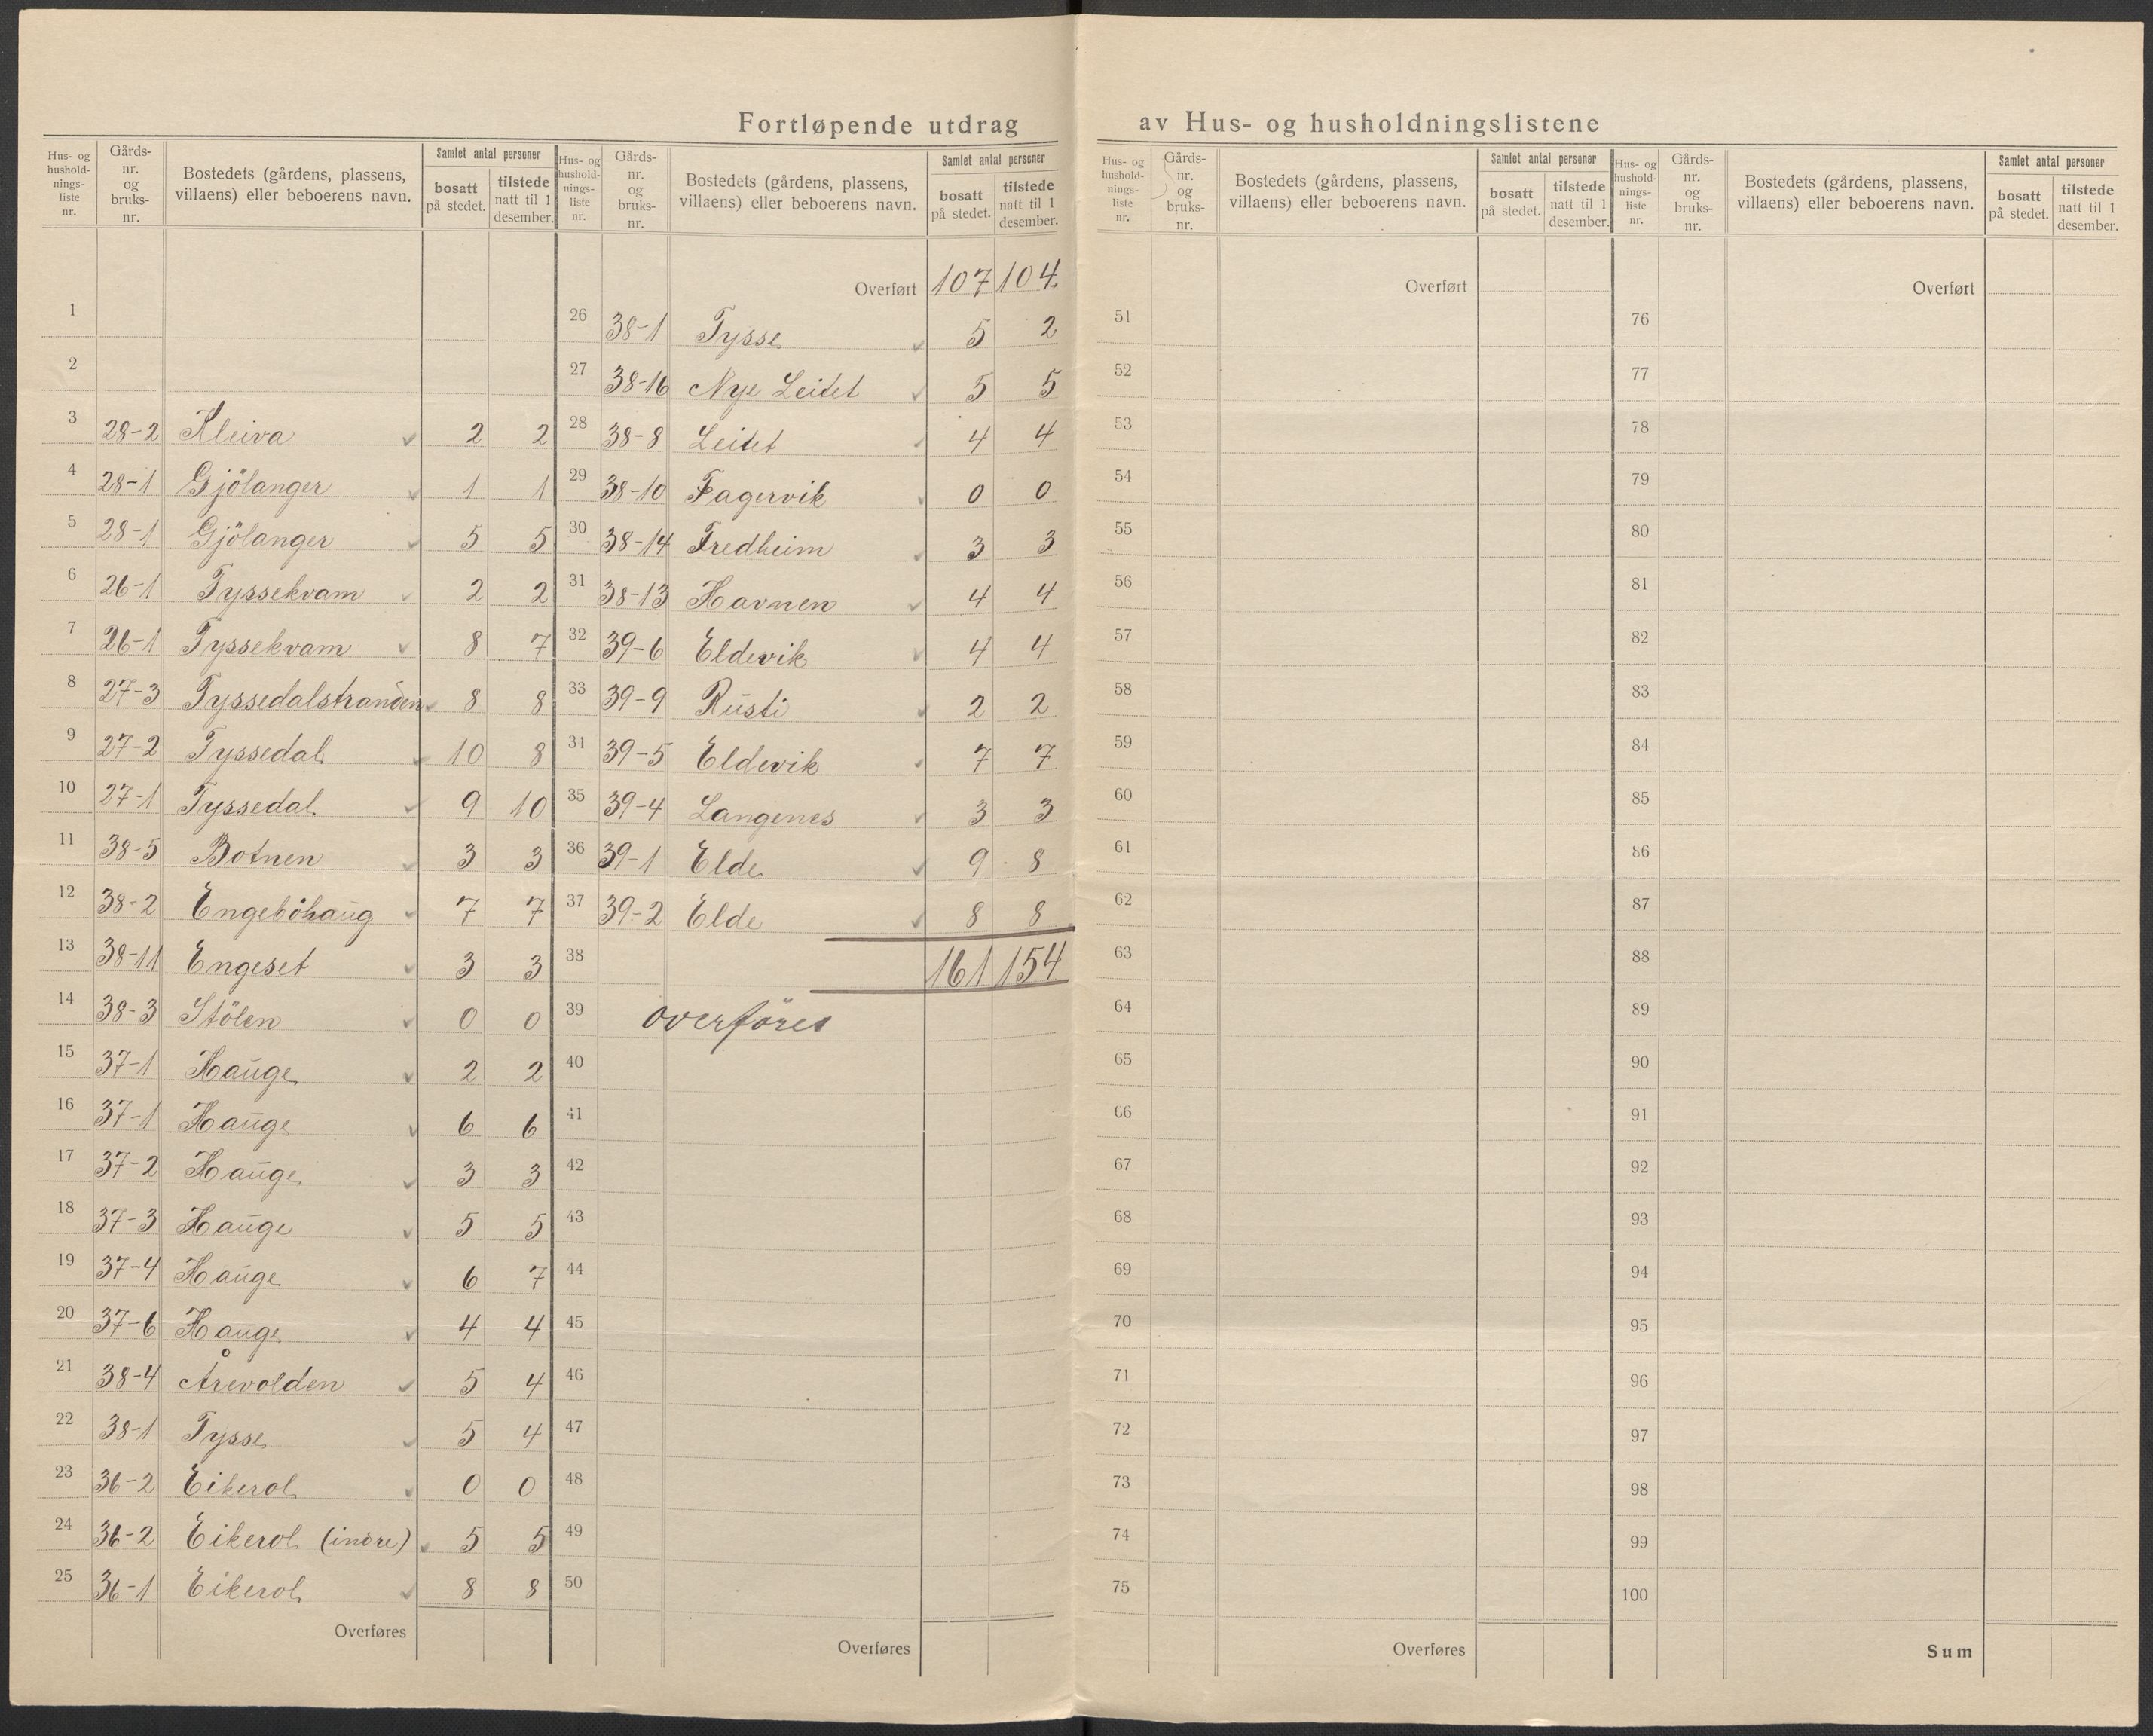 Fortløpende utdrag av Hus- og husholdningslistene
Hus- og husholdnings-liste nr. Gårds-nr. og bruks-nr. Bostedets (gårdens, plassens, villaens) eller beboerens navn. Samlet antal personer bosatt på stedet. tilstede natt til 1 desember.
1
2
3 28-2 Kleiva 2 2
4 28-1 Gjölanger 1 1
5 28-1 Gjölanger 5 5
6 26-1 Tyssekvam 2 2
7 26-1 Tyssekvam 8 7
8 27-3 Tyssedalstranden 8 8
9 27-2 Tyssedal 10 8
10 27-1 Tyssedal 9 10
11 38-5 Botnen 3 3
12 38-2 Engebøhaug 7 7
13 38-11 Engeset 3 3
14 38-3 Stölen 0 0
15 37-1 Hauge 2 2
16 37-1 Hauge 6 6
17 37-2 Hauge 3 3
18 37-3 Hauge 5 5
19 37-4 Hauge 6 7
20 37-6 Hauge 4 4
21 38-4 Årevolden 5 4
22 38-1 Tysse 5 4
23 36-2 Eikerol 0 0
24 36-2 Eikerol (indre) 5 5
25 36-1 Eikerol 8 8
Overføres
Hus- og husholdnings-liste nr. Gårds-nr. og bruks-nr. Bostedets (gårdens, plassens, villaens) eller beboerens navn. Samlet antal personer bosatt på stedet. tilstede natt til 1 desember.
Overført 107 104
26 38-1 Tysse 5 2
27 38-16 Nye Leitet 5 5
28 38-8 Leitet 4 4
29 38-10 Fagervik 0 0
30 38-14 Fredheim 3 3
31 38-13 Havnen 4 4
32 39-6 Eldevik 4 4
33 39-9 Rusti 2 2
34 39-5 Eldevik 7 7
35 39-4 Langenes 3 3
36 39-1 Elde 9 8
37 39-2 Elde 8 8
38 161 154
39 overföres
40
41
42
43
44
45
46
47
48
49
50
Overføres
Hus- og husholdnings-liste nr. Gårds-nr. og bruks-nr. Bostedets (gårdens, plassens, villaens) eller beboerens navn. Samlet antal personer bosatt på stedet. tilstede natt til 1 desember.
Overført
51
52
53
54
55
56
57
58
59
60
61
62
63
64
65
66
67
68
69
70
71
72
73
74
75
Overføres
Hus- og husholdnings-liste nr. Gårds-nr. og bruks-nr. Bostedets (gårdens, plassens, villaens) eller beboerens navn. Samlet antal personer bosatt på stedet. tilstede natt til 1 desember.
Overført
76
77
78
79
80
81
82
83
84
85
86
87
88
89
90
91
92
93
94
95
96
97
98
99
100
Sum